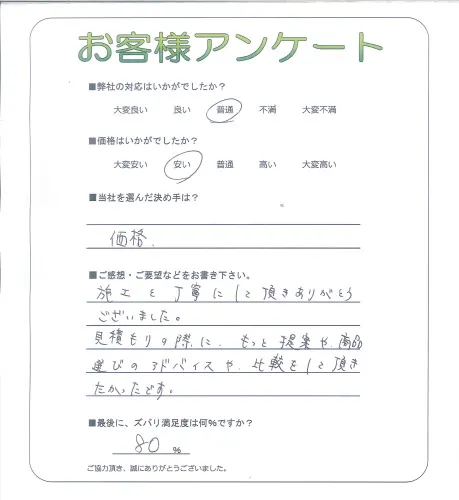 お客様アンケート
■弊社の対応はいかがでしたか？
大変良い 良い 普通 不満 大変不満
■価格はいかがでしたか？
大変安い 安い 普通 高い 大変高い
■当社を選んだ決め手は？
価格.
■ご感想・ご要望などをお書き下さい。
施工も丁寧にして頂きありがとう
ございました。
見積もりの際に、もっと提案や、商品
選びのアドバイスや、比較をして頂き
たかったです。
■最後に、ズバリ満足度は何%ですか？
80 %
ご協力頂き、誠にありがとうございました。